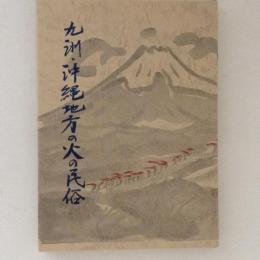 九州・沖縄地方の火の民俗